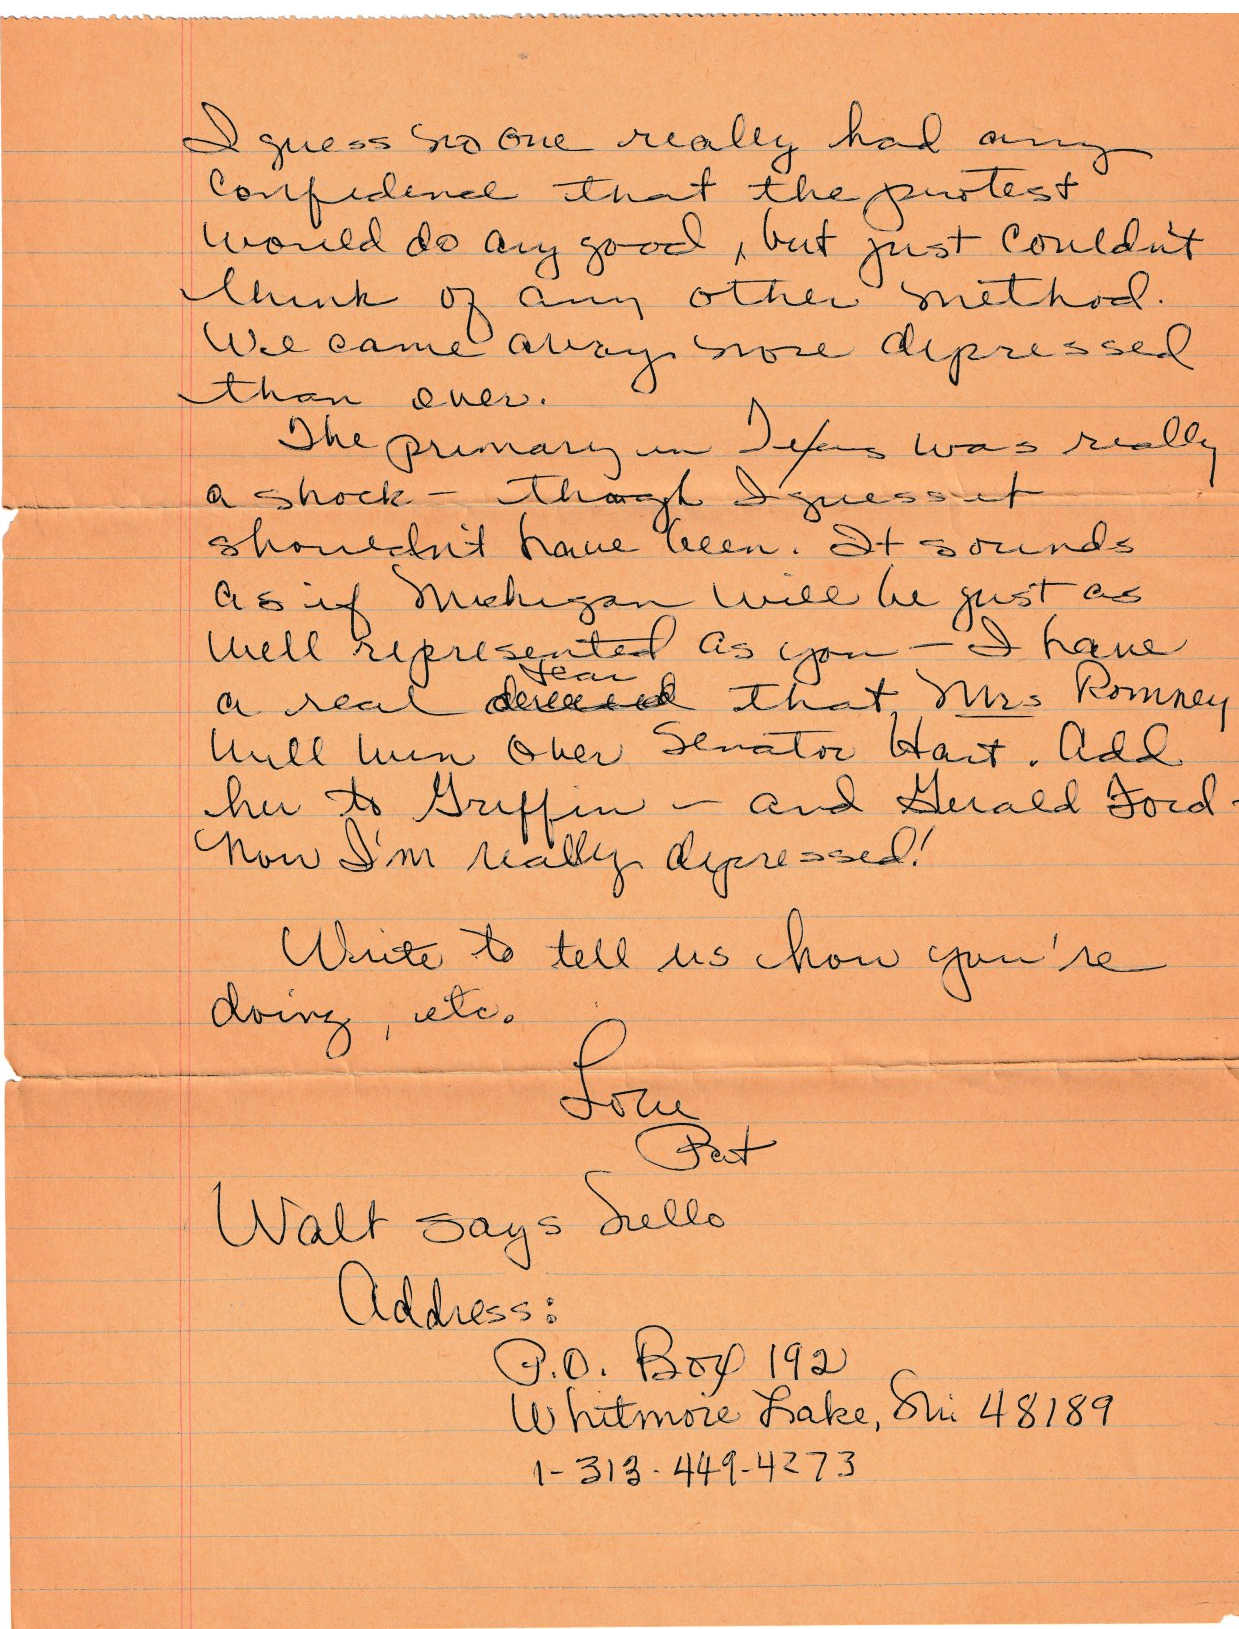 I guess no one really had any
confidence that the protest
would do any good, but just couldn't
think of any other method.
We came away more depressed
than ever.
The primary in Texas was really
a shock - though I guess it
shouldn't have been. It sounds
as if Michigan will be just as
well represented as you - I have
fear
a real that Mrs Romney
will win over Senator Hart. Add
her to Griffin - and Gerald Ford -
Now I'm really depressed!
Write to tell us how you're
doing, etc.
Love
Pat
Walt says hello
Address:
P.O. Box 192
Whitmore Lake, Mi 48189
1-313-449-4273